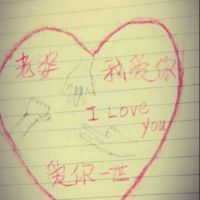 老婆 我爱你
I LOVE
you
爱你一世